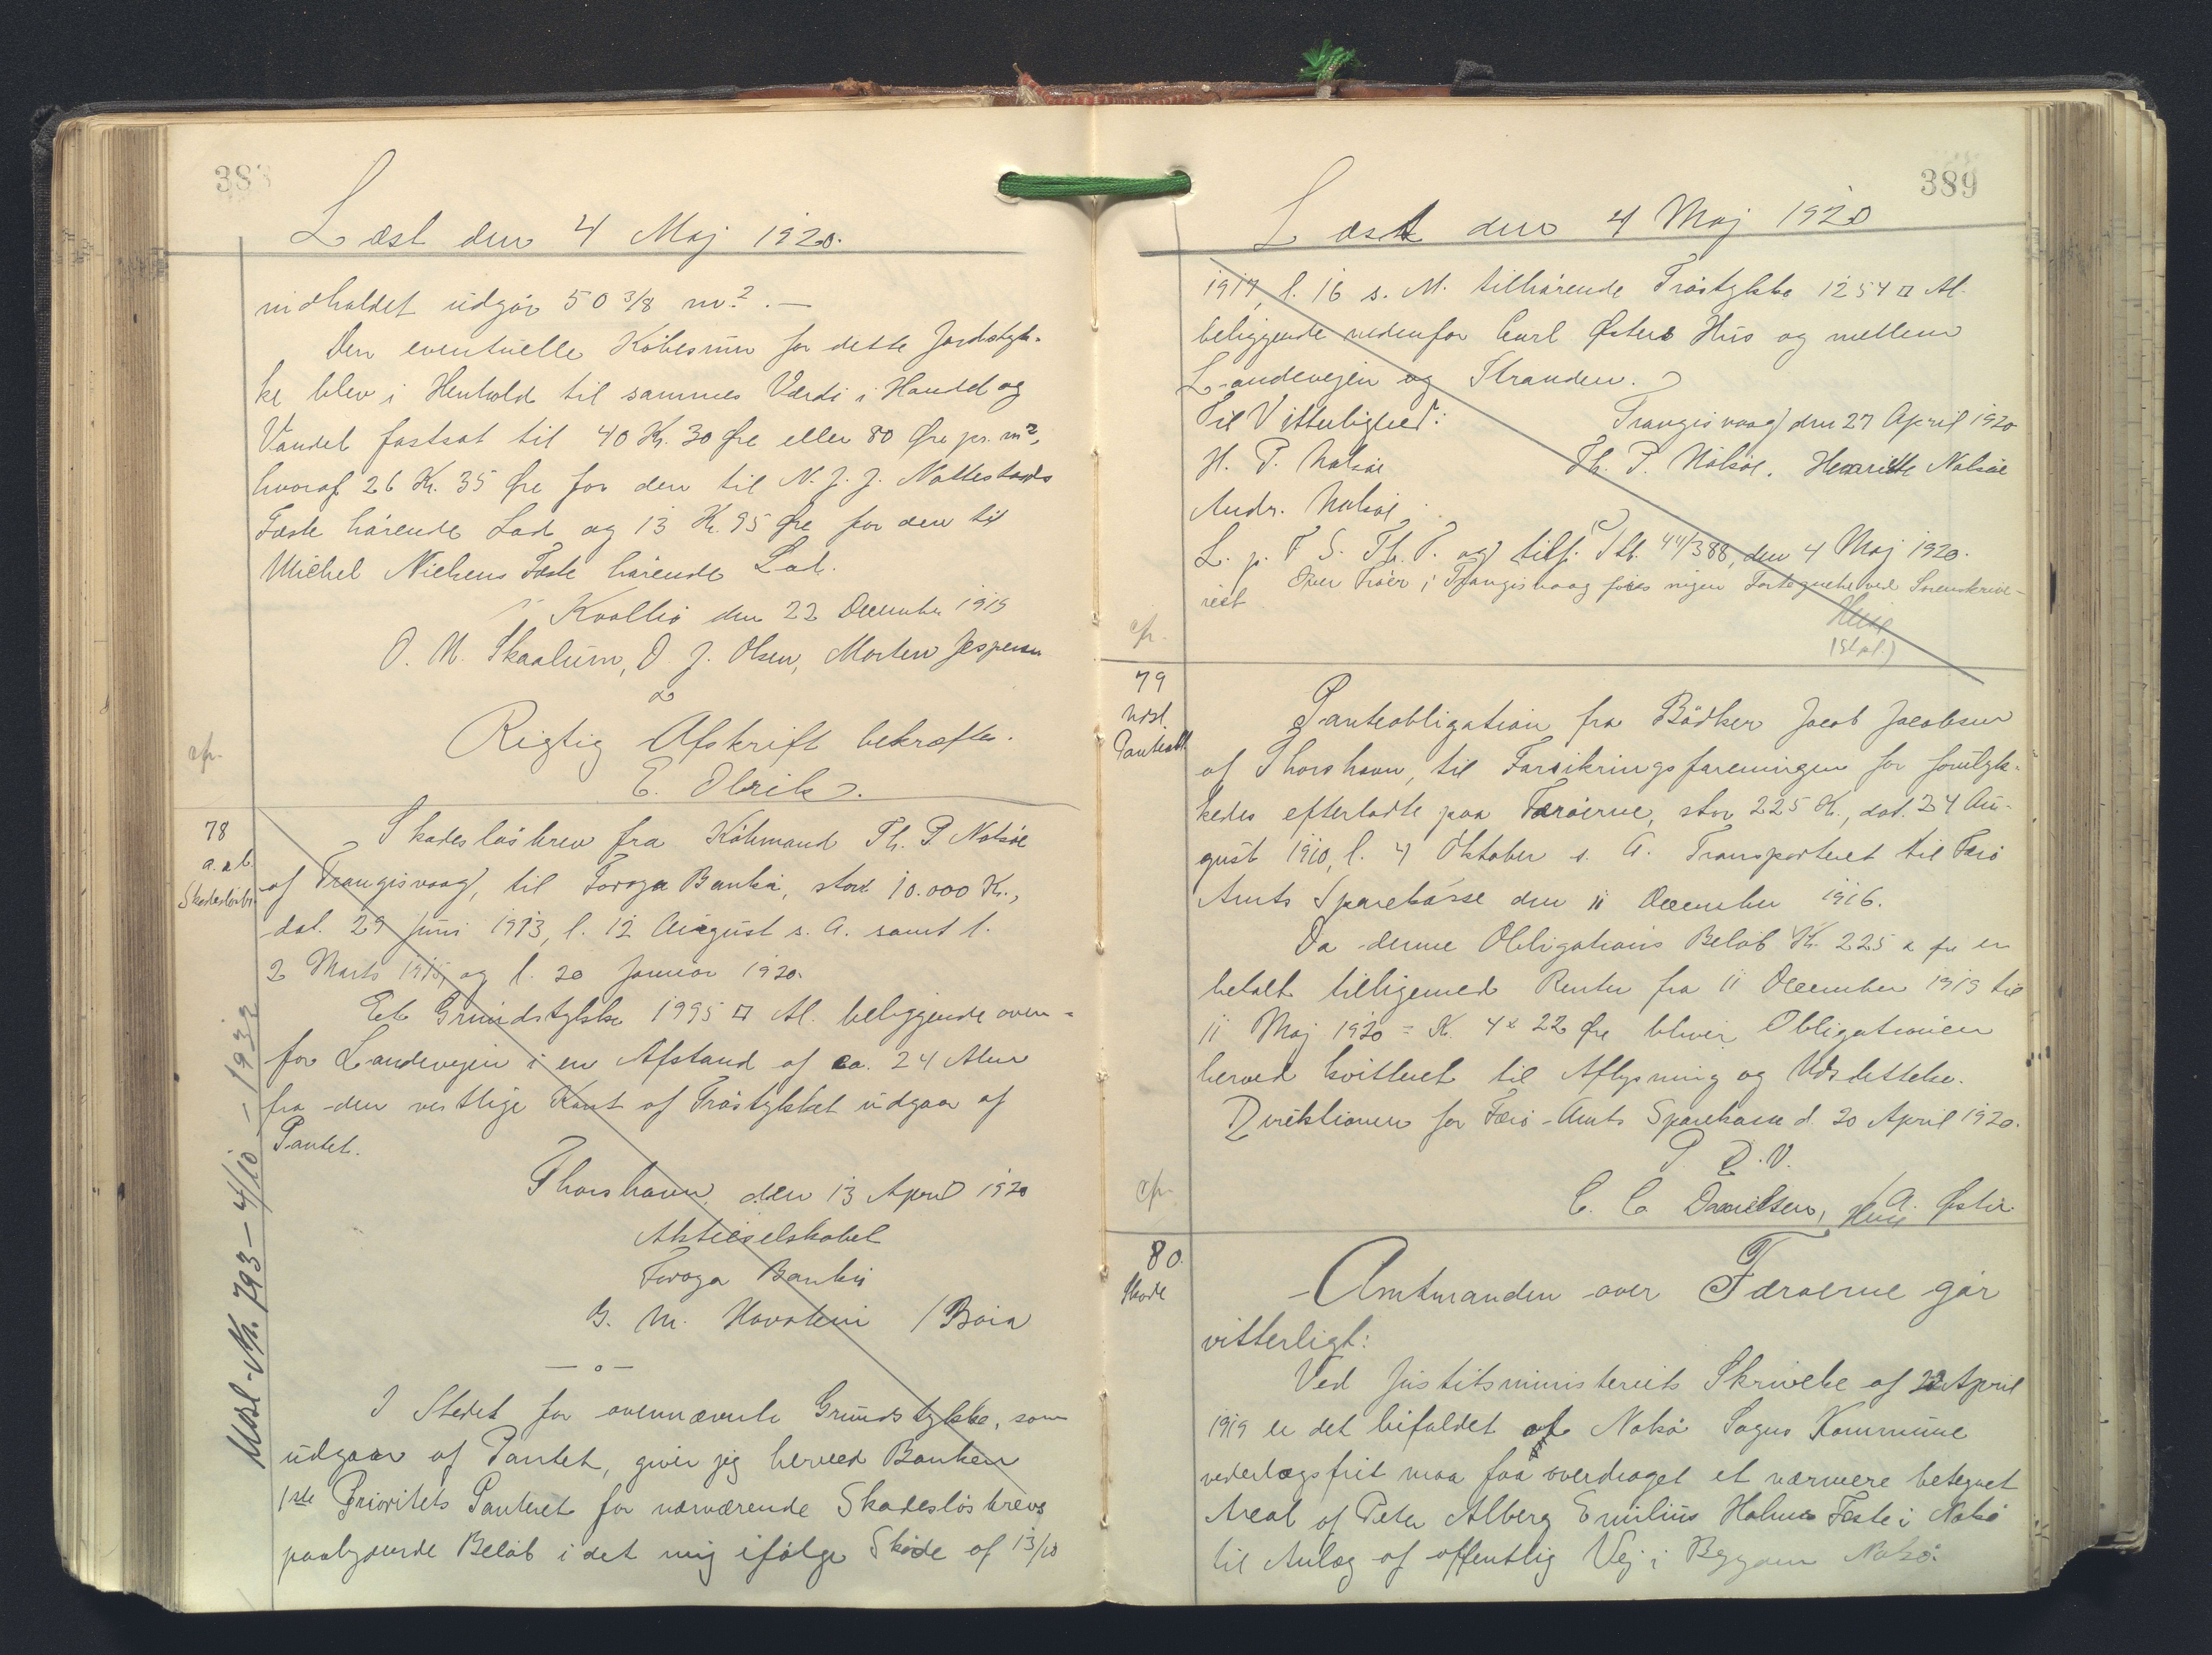 388
Læst den 4 Maj 1920.
indholdet udgør 50 3/8 m². —
Den eventuelle Købesum for dette Jordstyk-
ke blev i Henhold til sammes Værdi i Handel og
Vandel fastsat til 40 Kr. 30 Øre eller 80 Øre pr. m²,
hvoraf 26 Kr. 35 Øre for den til N. J. J. Nattestads
Fæste hørende Lod og 13 Kr. 95 Øre for den til
Michel Nielsens Fæste hørende Lod.
Kvalbø den 22 December 1919
O. M. Skaalum, D. J. Olsen, Morten Jespersen
Rigtig Afskrift bekræftes.
cfr.
E. Olrik.
78
a. at.
Skadesløsbr.
Skadesløsbrev fra Købmand Th. P. Nolsøe
af Trangisvaag, til Føroya Banki, stort 10.000 Kr.,
dat. 29 Juni 1913, l. 12 August s. A. samt l.
2 Marts 1915, og l. 20 Januar 1920.
Et Grundstykke 1995 □ Al. beliggende oven-
for Landevejen i en Afstand af ca. 24 Alen
fra den vestlige Kant af Trøstykket udgaar af
Pantet.
Thorshavn, den 13 April 1920
Aktieselskabet
Føroya Banki
G. M. Hovstein / Boia
— o —
I Stedet for ovennævnte Grundstykke, som
udgaar af Pantet, giver jeg herved Banken
1ste Prioritets Panteret for nærværende Skadesløsbrevs
paalydende Beløb i det mig ifølge Skøde af 13/10
Udsl. Nr. 793 – 4/10 – 1932
389
Læst den 4 Maj 1920
1917, l. 16 s. M. tilhørende Trøstykke 1254 □ Al.
beliggende nedenfor Carl Østers Hus og mellem
Landevejen og Stranden.
Til Vitterlighed: Trangisvaag den 27 April 1920
H. P. Nolsøe Th. P. Nolsøe. Henriette Nolsøe
Andr. Nolsøe
L. p. F. S. Th. P. og tilf. Stb. 44/388, den 4 Maj 1920.
Over Trøer i Trangisvaag føres ingen Fortegnelse ved Sorenskrive-
riet
cfr.
(Stpl.)
79
Udsl.
Panteobl.
Panteobligation fra Bødker Jacob Jacobsen
af Thorshavn, til Forsikringsforeningen for forulyk-
kedes efterladte paa Færøerne, stor 225 Kr., dat. 24 Au-
gust 1910, l. 4 Oktober s. A. Transporteret til Færø
Amts Sparekasse den 11 December 1916.
Da denne Obligations Beløb Kr. 225 „ Øre er
betalt tilligemed Renter fra 11 December 1919 til
11 Maj 1920 = Kr. 4 „ 22 Øre bliver Obligationen
herved kvitteret til Aflysning og Udslettelse.
Direktionen for Færø-Amts Sparekasse d. 20 April 1920.
P. D. V.
cfr.
C. C. Danielsen, / A. Øster.
80.
Skøde
Amtmanden over Færøerne gør
vitterligt:
Ved Justitsministeriets Skrivelse af 22 April
1919 er det bifaldet at Nolsø Sogns Kommune
vederlagsfrit maa faa overdraget et nærmere betegnet
Areal af Peter Alberg Emilius Holms Fæste i Nolsø
til Anlæg af offentlig Vej i Bygden Nolsø.